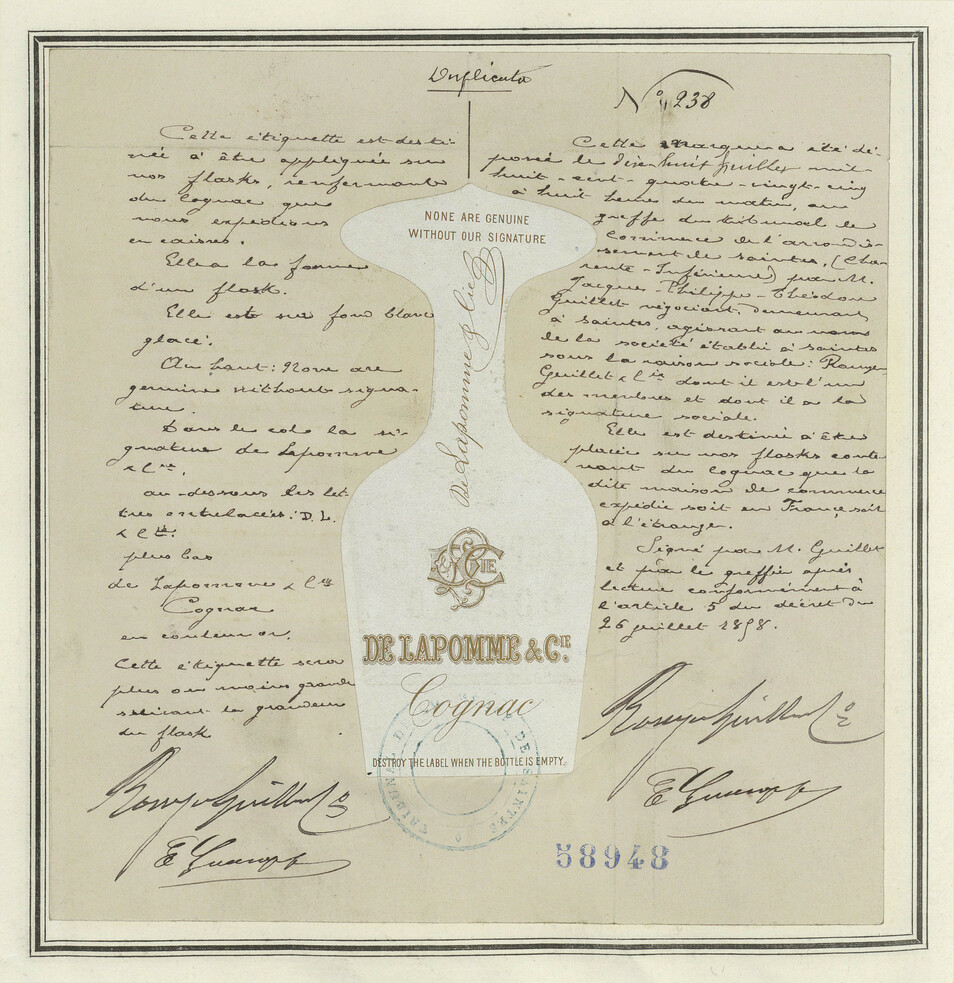 Duplicata
N° 238
Cette étiquette est desti-
née à être appliquée sur
nos flasks, renfermant
du Cognac que
nous expédions
en caisses.
Elle a la forme
d'un flask.
Elle est sur fond blanc
glacé.
Au haut: None are
genuine without signa-
ture.
Dans le col la si-
gnature de Lapomme
& Cie.
au-dessous les let-
tres entrelacées: D. L.
& Cie.
plus bas
de Lapomme & Cie
Cognac
en couleur or.
Cette étiquette sera
plus ou moins grande
suivant la grandeur
du flask
NONE ARE GENUINE
WITHOUT OUR SIGNATURE
De Lapomme & Cie
CIE
DE LAPOMME & CIE.
Cognac
DESTROY THE LABEL WHEN THE BOTTLE IS EMPTY.
TRIBUNAL DE SAINTES
Cette marque a été dé-
posée le dix-huit Juillet mil-
huit-cent-quatre-vingt-cinq
à huit heures du matin, au
greffe du tribunal de
Commerce de l'arrondis-
sement de Saintes, (Cha-
rente-Inférieure) par M.
Jacques-Philippe-Théodore
Guillet négociant, demeurant
à Saintes, agissant au nom
de la société établie à Saintes
sous la raison sociale: Rouyer
Guillet & Cie dont il est l'un
des membres et dont il a la
signature sociale.
Elle est destinée à être
placée sur nos flasks conte-
nant du Cognac que la
dite maison de commerce
expédie soit en France soit
à l'étranger.
Signé par M. Guillet
et par le greffier après
lecture conformément à
l'article 5 du décret du
26 juillet 1858.
Rouyer Guillet & Cie
Rouyer Guillet & Cie
58948